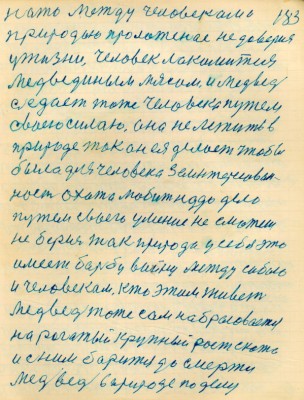 нато между человекам о 183
природою проложенае не доверия
у жизни, человек лакомится
медвединым мясом, и медведь
следает тоже человека путем
своею силаю, она не
природе так она ея делает чтобы
была для человека
ност охота надо дело
путем своего умение не сможеш
не берия так природа у себя это
имеет барбу вайну между сабою
и человекам, кто этим живет
медведь тоже сам набрасывается
на рогатый крупный рост скота
и с ним барится до смерти
медведь в природе по делу